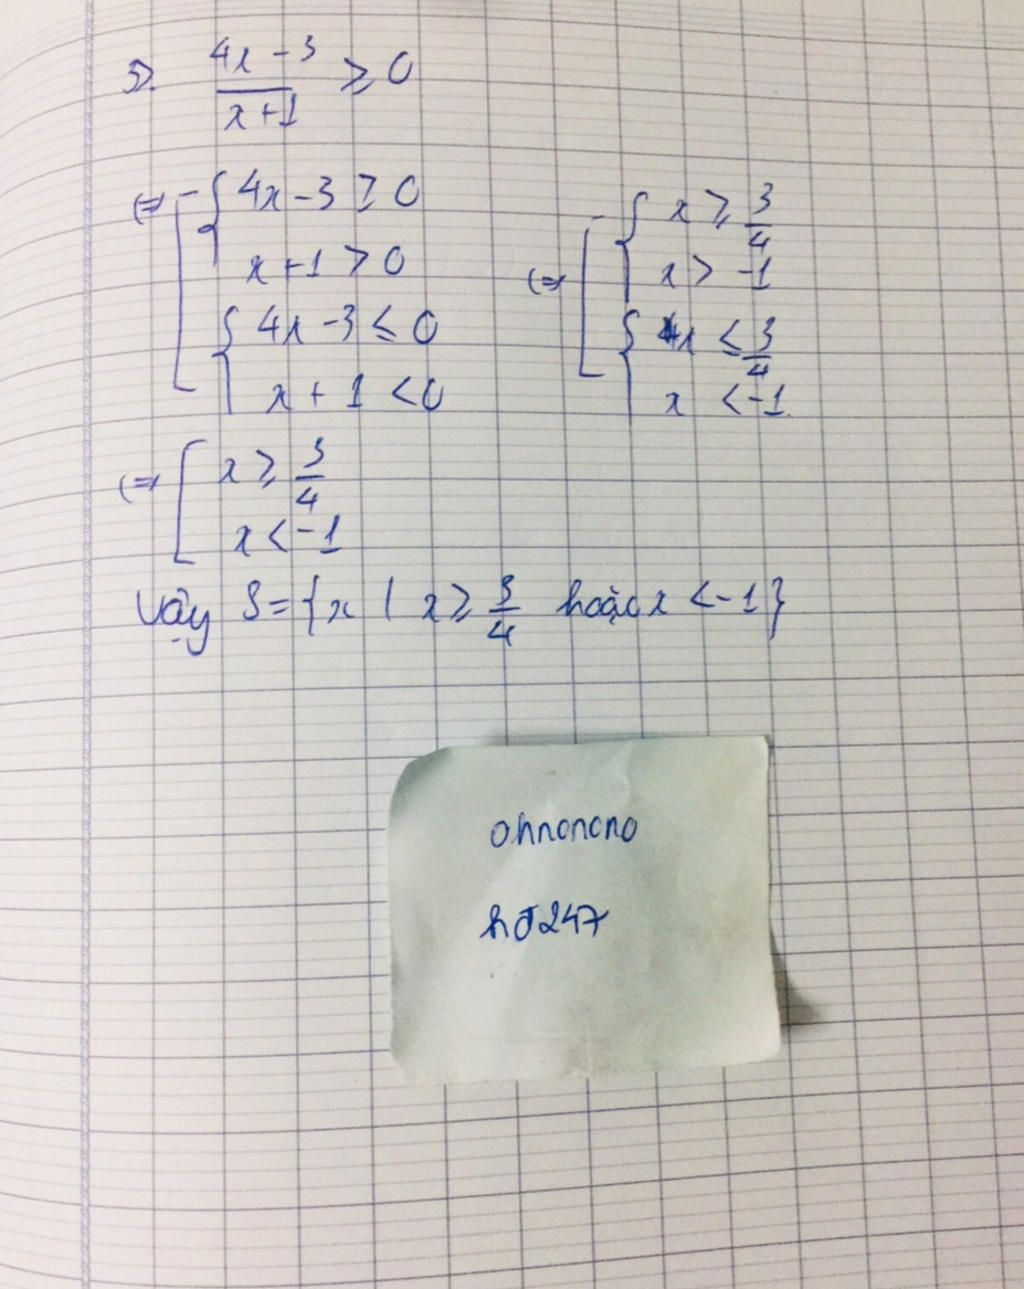 5) (4x - 3)/(x + 1) ⩾ 0
⇔ [ { 4x - 3 ≥ 0
x + 1 > 0
{ 4x - 3 ≤ 0
x + 1 < 0
⇔ [ { x ⩾ 3/4
x > -1
{ x ≤ 3/4
x < -1
⇔ [ x ⩾ 3/4
x < -1
Vậy S = {x | x ⩾ 3/4 hoặc x < -1}
ohnonono
hđ247